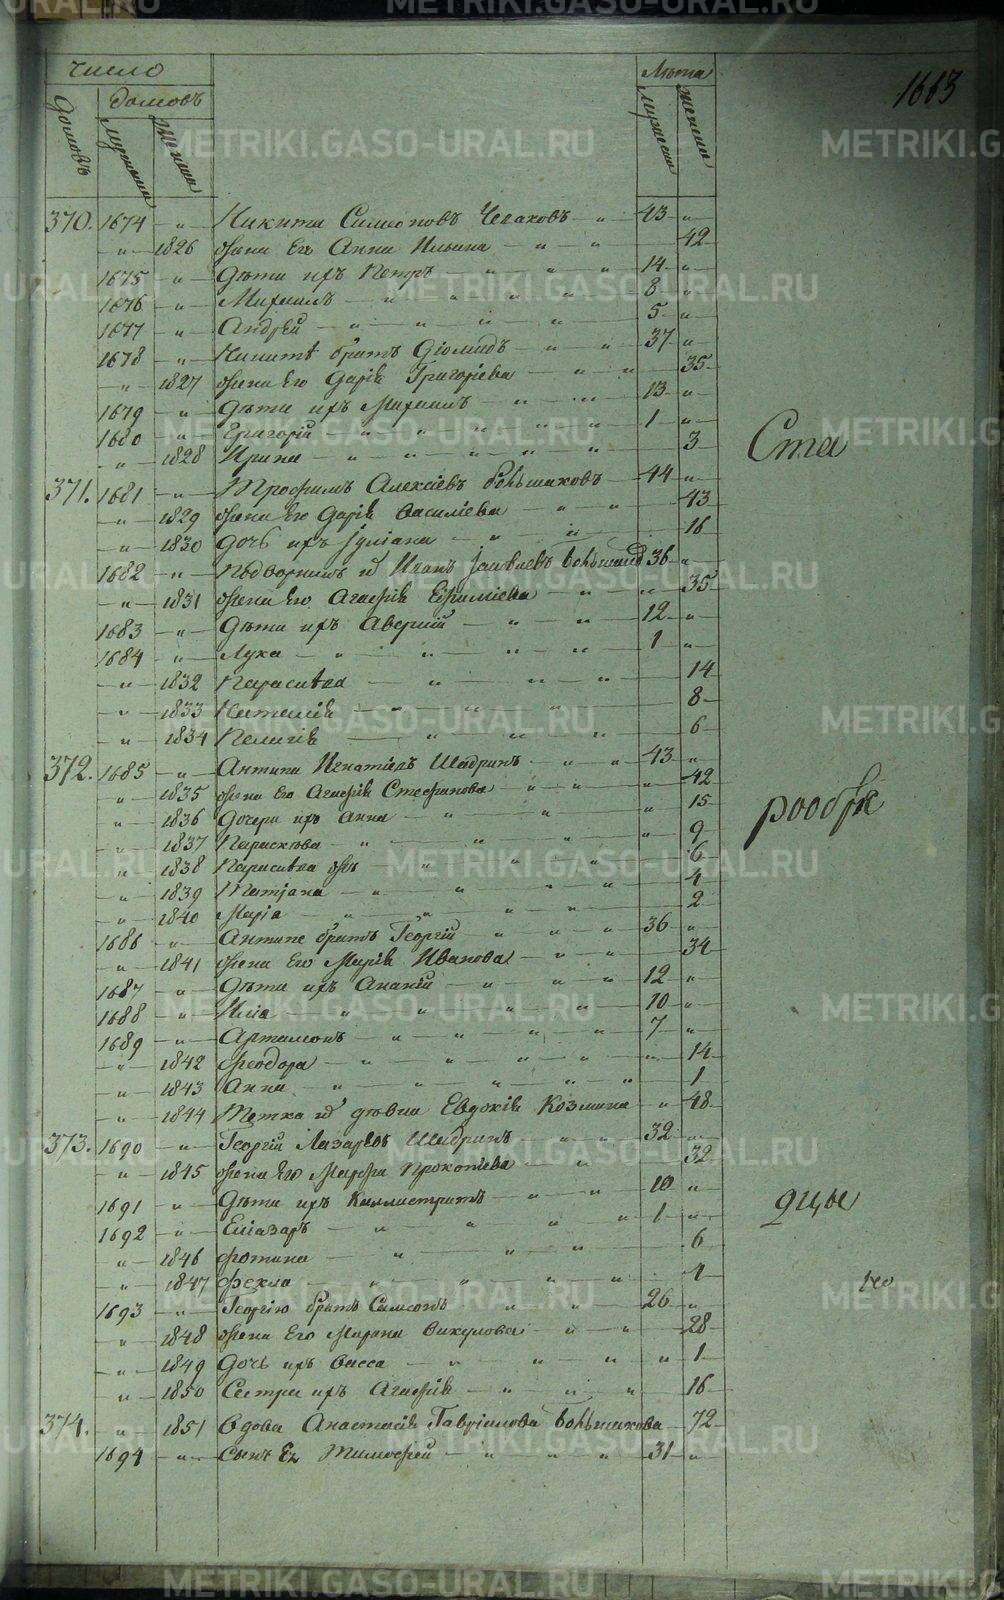 1663
Число Лѣта
домовъ
Домовъ Мужеска Женска Мужеска Женска
370. 1674 „ Никита Симеоновъ Чечаховъ „ 43 „
„ 1826 жена Его Анна Ильина „ „ 42
1675 „ Дѣти ихъ Петръ „ „ „ 14 „
1676 „ Михаилъ „ „ „ „ 8 „
1677 „ Андрей „ „ „ „ 5 „
1678 „ Никитѣ братъ Діомидъ „ „ 37 „
„ 1827 жена Его Дарія Григоріева „ „ 35
1679 „ Дѣти ихъ Михаилъ „ „ 13 „
1680 „ Григорій „ „ „ „ „ 1 „
„ 1828 Ирина „ „ „ „ „ 3
Ста
371. 1681 „ Трофимъ Алексіевъ Большаковъ 44 „
„ 1829 жена Его Дарія Василіева „ „ 43
„ 1830 Дочь ихъ Іуліана „ „ 16
1682 „ Подворникъ и Иванъ Іаковлевъ 36 „
„ 1831 жена Его Агафія Ефиміева „ „ 35
1683 „ Дѣти ихъ Аверкій „ „ 12 „
1684 „ Лука „ „ „ „ 1 „
„ 1832 Параскѣва „ „ „ 14
„ 1833 Наталія „ „ „ 8
„ 1834 Пелагія „ „ 6
372. 1685 „ Антипа Игнатіевъ Шадринъ „ „ 43 „
„ 1835 жена Его Агафія Стефанова „ „ „ 42
„ 1836 Дочери ихъ Анна „ „ „ 15
рообрѣ
„ 1837 Параскѣва „ „ „ „ 9
„ 1838 Параскѣва жъ „ „ „ 6
„ 1839 Татіана „ „ „ „ 4
„ 1840 Марія „ „ „ „ 2
1686 „ Антипе братъ Георгій „ „ „ 36 „
„ 1841 жена Его Марія Иванова „ „ 34
1687 „ Дѣти ихъ Ананій „ „ „ 12 „
1688 „ Илія „ „ „ „ 10 „
1689 „ Артамонъ „ „ „ „ 7 „
„ 1842 Феодора „ „ „ „ „ 14
„ 1843 Анна „ „ „ „ „ 1
„ 1844 Тетка и дѣвка Евдокія Козмина „ 48
373. 1690 „ Георгій Лазаревъ Шадринъ „ „ 32 „
„ 1845 жена Его Марфа Прокопіева „ „ 32
1691 „ Дѣти ихъ Каллистратъ „ „ 10 „
дцы
1692 „ Еліазаръ „ „ „ „ 1 „
„ 1846 Фотина „ „ „ 6
„ 1847 Фекла „ „ „ „ 4
1693 „ Георгію братъ Симеонъ „ „ 26 „
„ 1848 жена Его Марина Викулова „ „ 28
„ 1849 Дочь ихъ Васса „ „ „ „ 1
„ 1850 Сестра ихъ Агафія „ „ „ 16
374. „ 1851 Вдова Анастасія Гавріилова Большакова 72
1694 „ Сынъ Ея Тимофей „ „ „ 31 „
METRIKI.GASO-URAL.RU